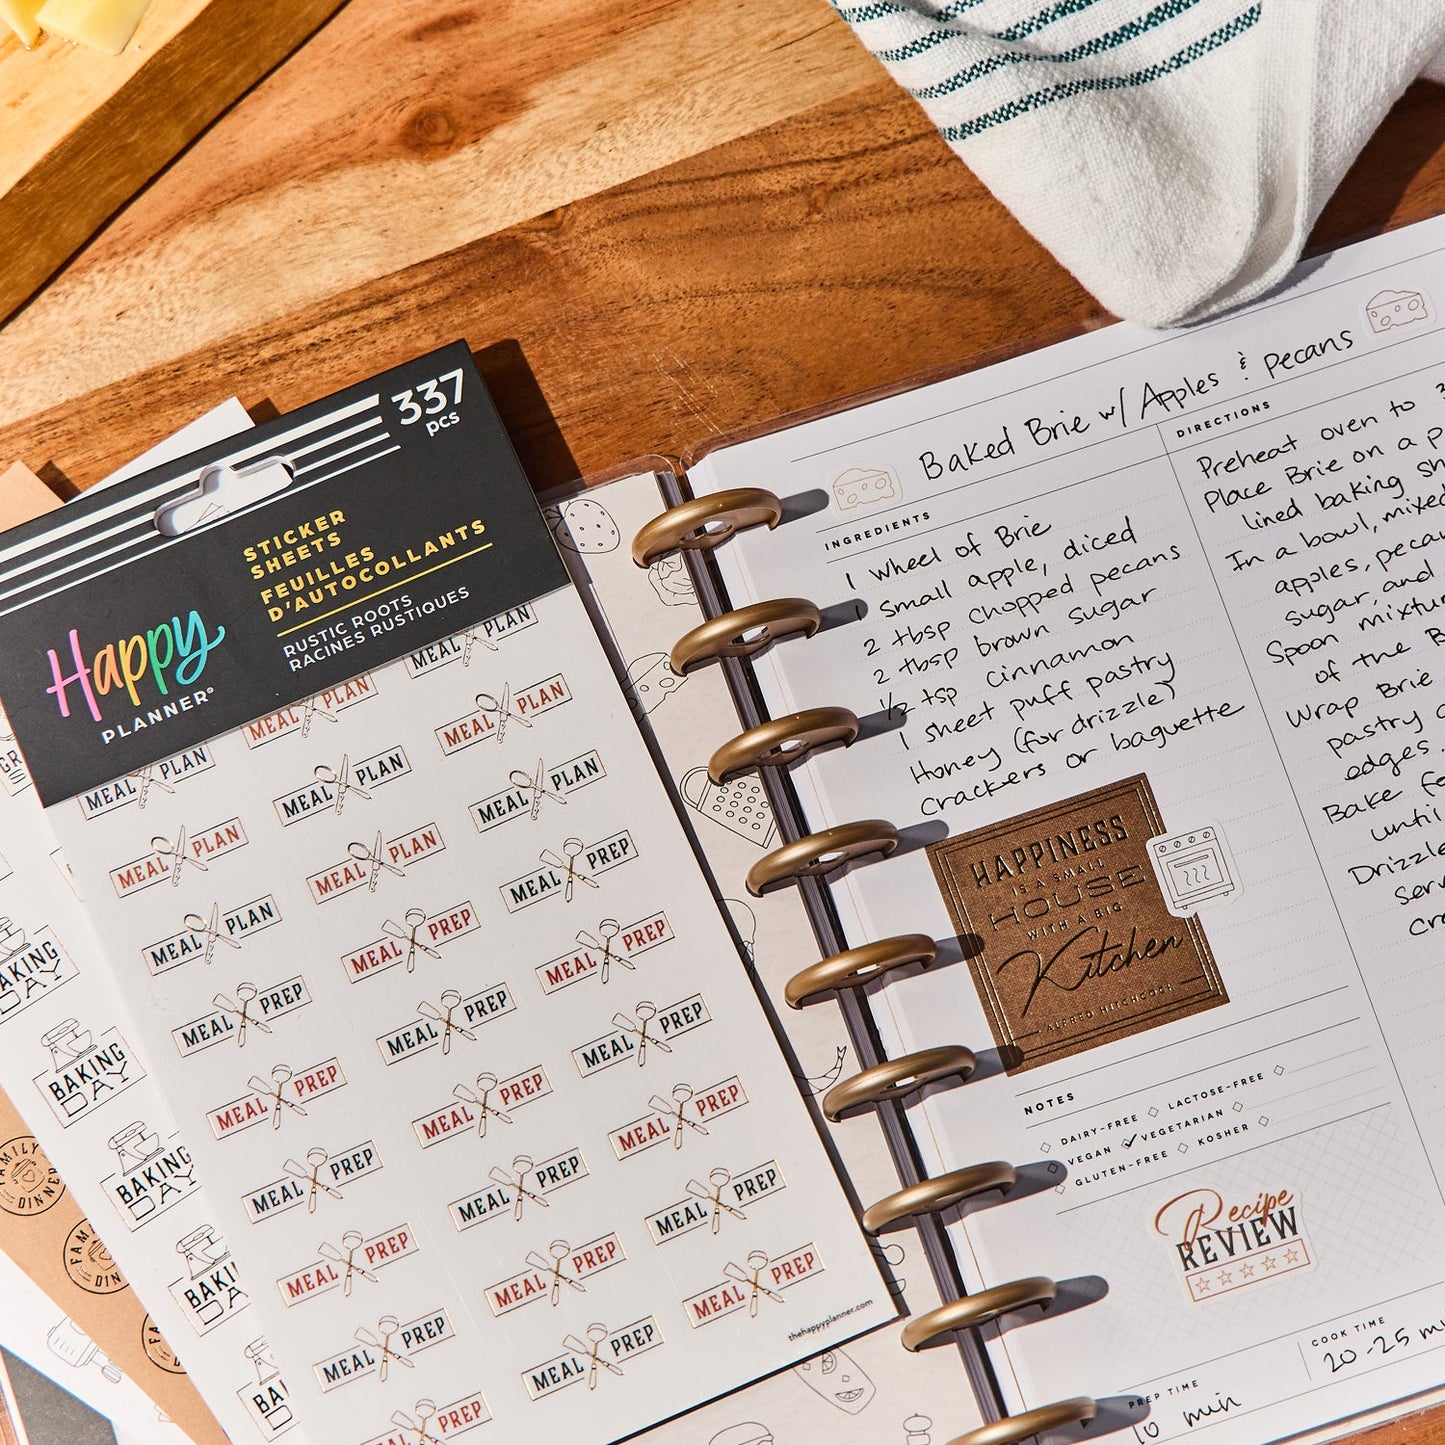 337
pcs
STICKER
SHEETS
FEUILLES
D'AUTOCOLLANTS
RUSTIC ROOTS
RACINES RUSTIQUES
Happy
PLANNER®
MEAL PLAN
MEAL PLAN
MEAL PLAN
MEAL PLAN
MEAL PLAN
MEAL PLAN
MEAL PLAN
MEAL PLAN
MEAL PLAN
MEAL PREP
MEAL PLAN
MEAL PREP
MEAL PREP
MEAL PREP
MEAL PREP
MEAL PREP
MEAL PREP
MEAL PREP
MEAL PREP
MEAL PREP
MEAL PREP
MEAL PREP
MEAL PREP
MEAL PREP
MEAL PREP
MEAL PREP
MEAL PREP
PREP
thehappyplanner.com
BAKING
DAY
BAKING
DAY
BAKING
DAY
FAMILY
DINNER
Baked Brie w/ Apples & pecans
INGREDIENTS
1 wheel of Brie
1 small apple, diced
2 tbsp chopped pecans
2 tbsp brown sugar
1/2 tsp cinnamon
1 sheet puff pastry
Honey (for drizzle)
crackers or baguette
HAPPINESS
IS A SMALL
HOUSE
WITH A BIG
Kitchen
- ALFRED HITCHCOCK -
DIRECTIONS
Preheat oven to
Place Brie on a
lined baking
In a bowl, mixed
apples,
sugar, and
Spoon
of the
Wrap Brie
pastry
edges.
Bake
until
Drizzle
NOTES
DAIRY-FREE LACTOSE-FREE
VEGAN VEGETARIAN
GLUTEN-FREE KOSHER
Recipe
REVIEW
PREP TIME
10 min
COOK TIME
20-25